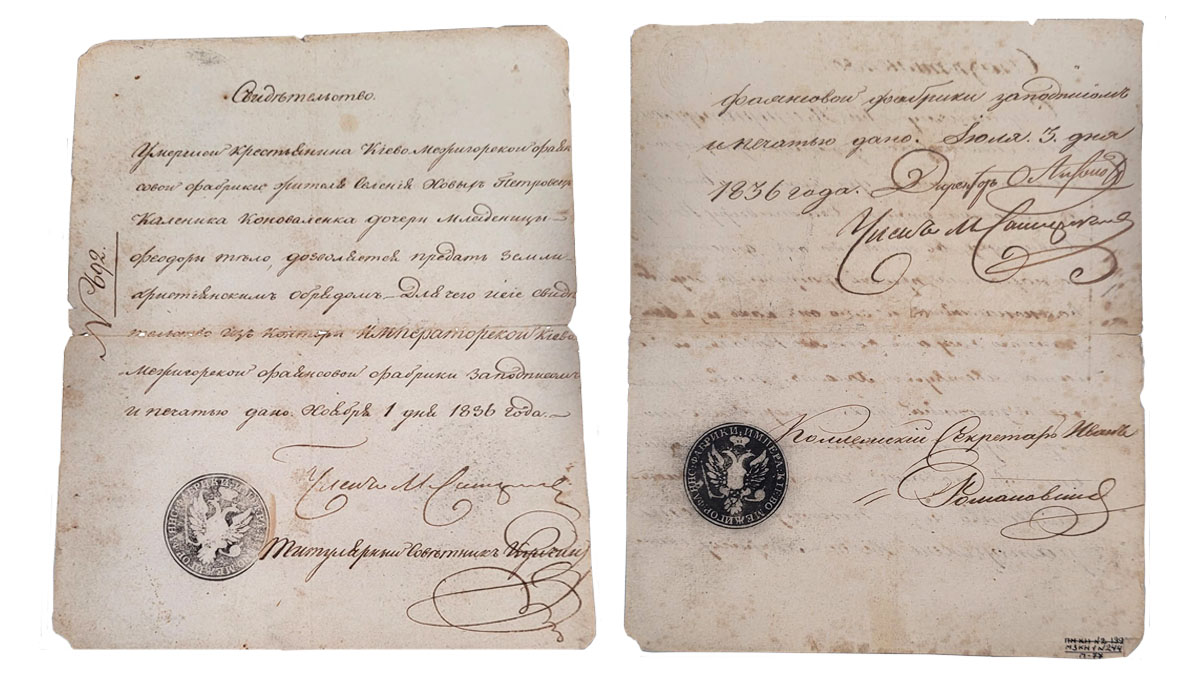 Свидѣтельство.
Умершей крестьянина Кіево Межигорской фаян
совой фабрики жителя селенія Новыхъ Петровецъ
Каленика Коноваленка дочери младеницы
Феодори тѣло, дозволяется предать земли
христіянскимъ обрядомъ — Для чего и сіе свидѣ
тельство изъ Конторы ИМПЕРАТОРСКОЙ Кіево
Межигорской фаянсовой фабрики заподписомъ
и печатью дано. Ноября 1 дня 1836 года. —
№ 692.
Членъ М.
Титулярный Совѣтникъ
фаянсовой фабрики заподписомъ
и печатью дано. Іюля. 3. дня
1836 года. Директоръ
Членъ М.
ФАЯНС: ФАБРИКИ ИМПЕРА: КІЕВО МЕЖИГОР:
Коллежскій Секретарь Иванъ
Романовскій
ПМ КН №2 139
МЗКН 1 N 244
П-77